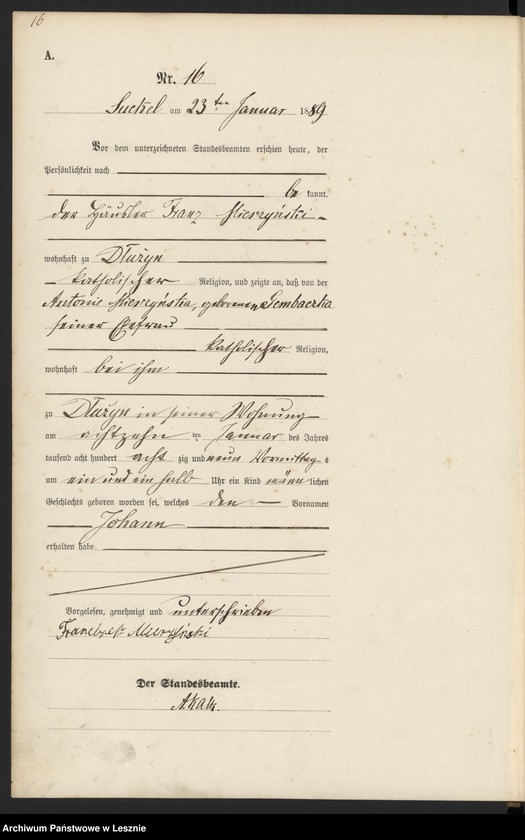 16
A.
Nr. 16
am 23 ten Januar 1889
Vor dem unterzeichneten Standesbeamten erschien heute, der
Persönlichkeit nach
be kannt,
der Häusler Franz Mierzyński
wohnhaft zu Dłużyn
katholischer Religion, und zeigte an, daß von der
Antonie Mierzyńska, geborenen
seiner Ehefrau
katholischer Religion,
wohnhaft bei ihm
zu Dłużyn in seiner Wohnung
am achtzehn ten Januar des Jahres
tausend acht hundert acht zig und neun Vormittag s
um ein und ein halb Uhr ein Kind männ lichen
Geschlechts geboren worden sei, welches den Vornamen
Johann
erhalten habe
Vorgelesen, genehmigt und unterschrieben
Mierzyński
Der Standesbeamte.
Archiwum Państwowe w Lesznie